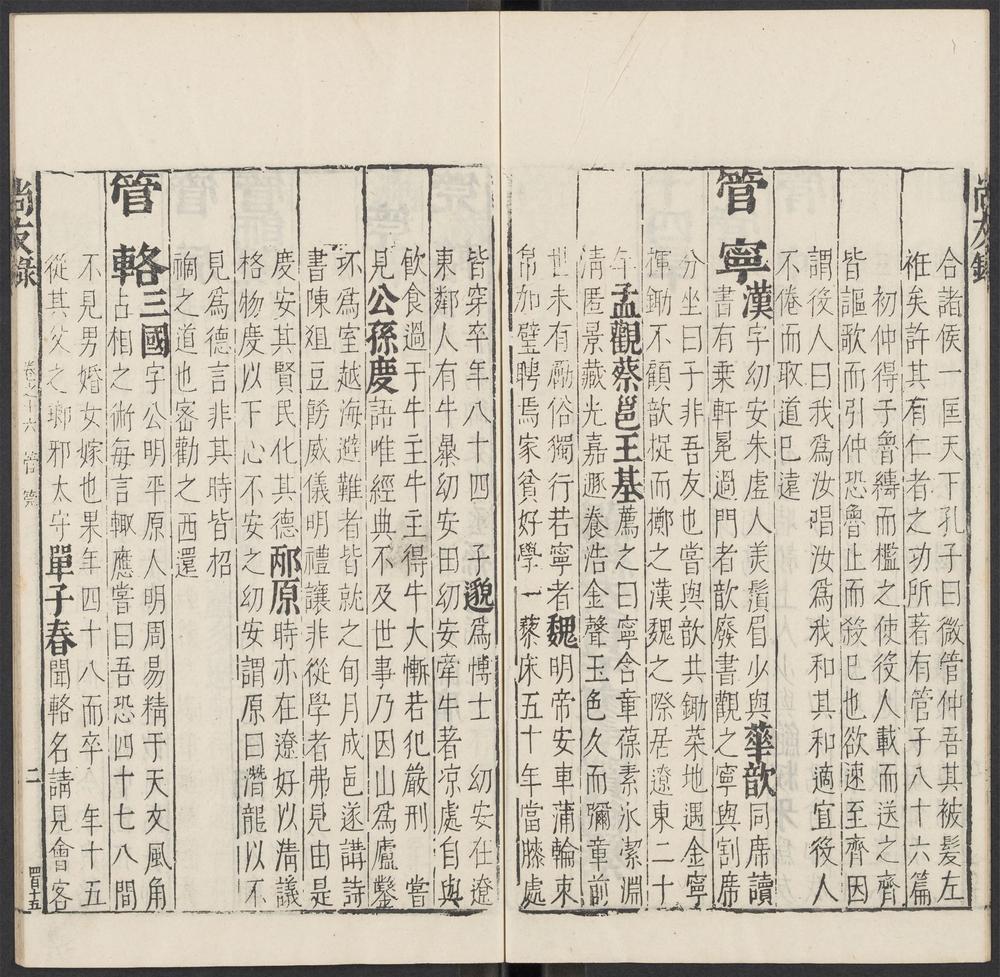 尚友錄
合諸侯一匡天下孔子曰微管仲吾其被髮左
袵矣許其有仁者之功所著有管子八十六篇
初仲得于魯縛而檻之使役人載而送之齊
皆謳歌而引仲恐魯止而殺巳也欲速至齊因
謂役人曰我爲汝唱汝爲我和其和適宜役人
不倦而取道巳遠
管寧漢字幼安朱虛人美鬚眉少與華歆同席讀
書有乗軒冕過門者歆廢書觀之寧與割席
分坐曰子非吾友也嘗與歆共鋤菜地遇金寧
揮鋤不顧歆捉而擲之漢魏之際居遼東二十
年孟觀蔡邕王基薦之曰寧含章葆素氷潔淵
清匿景藏光嘉遯養浩金聲玉色久而彌章前
世未有勵俗獨行若寧者魏明帝安車蒲輪束
帛加璧聘焉家貧好學一藜床五十年當膝處
皆穿卒年八十四 子邈爲博士 幼安在遼
東鄰人有牛暴幼安田幼安牽牛著凉處自與
飲食過于牛主牛主得牛大慚若犯嚴刑 嘗
見公孫慶語唯經典不及世事乃因山爲廬鑿
坏爲室越海避難者皆就之旬月成邑遂講詩
書陳狙豆餝威儀明禮讓非從學者弗見由是
慶安其賢民化其德邴原時亦在遼好以淸議
格物慶以下心不安之幼安謂原曰潛龍以不
見爲德言非其時皆招
禍之道也宻勸之西還
管輅三國字公明平原人明周易精于天文風角
占相之術每言輙應嘗曰吾恐四十七八間
不見男婚女嫁也果年四十八而卒 年十五
從其父之瑯邪太守單子春聞輅名請見會客
尚友錄
卷之十六 管
二
四百十五